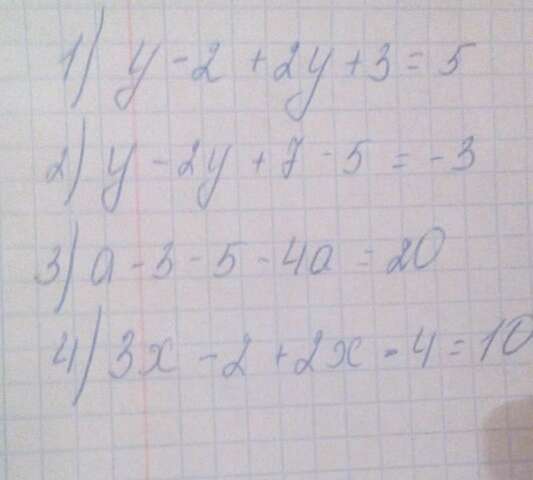 1) y - 2 + 2y + 3 = 5
2) y - 2y + 7 - 5 = -3
3) a - 3 - 5 - 4a = 20
4) 3x - 2 + 2x - 4 = 10